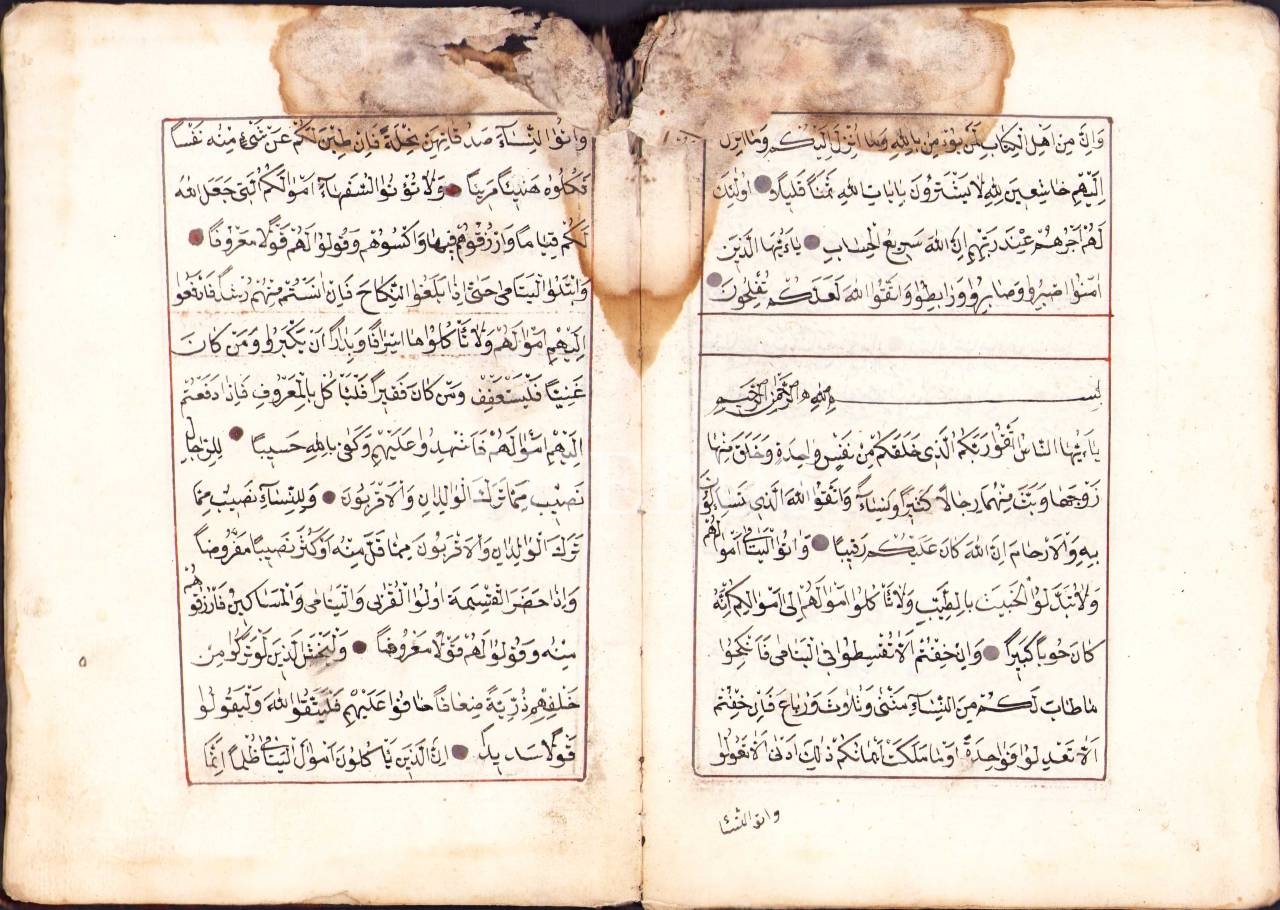 وَاِنَّ مِنْ اَهْلِ الْكِتَابِ لَمَنْ يُؤْمِنُ بِاللّٰهِ وَمَا اُنْزِلَ اِلَيْكُمْ وَمَا اُنْزِلَ
اِلَيْهِمْ خَاشِعِينَ لِلّٰهِ لَا يَشْتَرُونَ بِاٰيَاتِ اللّٰهِ ثَمَنًا قَلِيلًا اُولٰئِكَ
لَهُمْ اَجْرُهُمْ عِنْدَ رَبِّهِمْ اِنَّ اللّٰهَ سَرِيعُ الْحِسَابِ يَاءَيُّهَا الَّذِينَ
اٰمَنُوا اصْبِرُوا وَصَابِرُوا وَرَابِطُوا وَاتَّقُوا اللّٰهَ لَعَلَّكُمْ تُفْلِحُونَ
بِسْمِ اللّٰهِ الرَّحْمٰنِ الرَّحِيمِ
يَاءَيُّهَا النَّاسُ اتَّقُوا رَبَّكُمُ الَّذِي خَلَقَكُمْ مِنْ نَفْسٍ وَاحِدَةٍ وَخَلَقَ مِنْهَا
زَوْجَهَا وَبَثَّ مِنْهُمَا رِجَالًا كَثِيرًا وَنِسَاءً وَاتَّقُوا اللّٰهَ الَّذِي تَسَاءَلُونَ
بِهِ وَالْاَرْحَامَ اِنَّ اللّٰهَ كَانَ عَلَيْكُمْ رَقِيبًا وَاٰتُوا الْيَتَامٰى اَمْوَالَهُمْ
وَلَا تَتَبَدَّلُوا الْخَبِيثَ بِالطَّيِّبِ وَلَا تَأْكُلُوا اَمْوَالَهُمْ اِلٰى اَمْوَالِكُمْ اِنَّهُ
كَانَ حُوبًا كَبِيرًا وَاِنْ خِفْتُمْ اَلَّا تُقْسِطُوا فِي الْيَتَامٰى فَانْكِحُوا
مَا طَابَ لَكُمْ مِنَ النِّسَاءِ مَثْنٰى وَثُلَاثَ وَرُبَاعَ فَاِنْ خِفْتُمْ
اَلَّا تَعْدِلُوا فَوَاحِدَةً اَوْ مَا مَلَكَتْ اَيْمَانُكُمْ ذٰلِكَ اَدْنٰى اَلَّا تَعُولُوا
واتوا النساء
وَاٰتُوا النِّسَاءَ صَدُقَاتِهِنَّ نِحْلَةً فَاِنْ طِبْنَ لَكُمْ عَنْ شَيْءٍ مِنْهُ نَفْسًا
فَكُلُوهُ هَنِيئًا مَرِيئًا وَلَا تُؤْتُوا السُّفَهَاءَ اَمْوَالَكُمُ الَّتِي جَعَلَ اللّٰهُ
لَكُمْ قِيَامًا وَارْزُقُوهُمْ فِيهَا وَاكْسُوهُمْ وَقُولُوا لَهُمْ قَوْلًا مَعْرُوفًا
وَابْتَلُوا الْيَتَامٰى حَتّٰى اِذَا بَلَغُوا النِّكَاحَ فَاِنْ اٰنَسْتُمْ مِنْهُمْ رُشْدًا فَادْفَعُوا
اِلَيْهِمْ اَمْوَالَهُمْ وَلَا تَأْكُلُوهَا اِسْرَافًا وَبِدَارًا اَنْ يَكْبَرُوا وَمَنْ كَانَ
غَنِيًّا فَلْيَسْتَعْفِفْ وَمَنْ كَانَ فَقِيرًا فَلْيَأْكُلْ بِالْمَعْرُوفِ فَاِذَا دَفَعْتُمْ
اِلَيْهِمْ اَمْوَالَهُمْ فَاَشْهِدُوا عَلَيْهِمْ وَكَفٰى بِاللّٰهِ حَسِيبًا لِلرِّجَالِ
نَصِيبٌ مِمَّا تَرَكَ الْوَالِدَانِ وَالْاَقْرَبُونَ وَلِلنِّسَاءِ نَصِيبٌ مِمَّا
تَرَكَ الْوَالِدَانِ وَالْاَقْرَبُونَ مِمَّا قَلَّ مِنْهُ اَوْ كَثُرَ نَصِيبًا مَفْرُوضًا
وَاِذَا حَضَرَ الْقِسْمَةَ اُولُوا الْقُرْبٰى وَالْيَتَامٰى وَالْمَسَاكِينُ فَارْزُقُوهُمْ
مِنْهُ وَقُولُوا لَهُمْ قَوْلًا مَعْرُوفًا وَلْيَخْشَ الَّذِينَ لَوْ تَرَكُوا مِنْ
خَلْفِهِمْ ذُرِّيَّةً ضِعَافًا خَافُوا عَلَيْهِمْ فَلْيَتَّقُوا اللّٰهَ وَلْيَقُولُوا
قَوْلًا سَدِيدًا اِنَّ الَّذِينَ يَأْكُلُونَ اَمْوَالَ الْيَتَامٰى ظُلْمًا اِنَّمَا